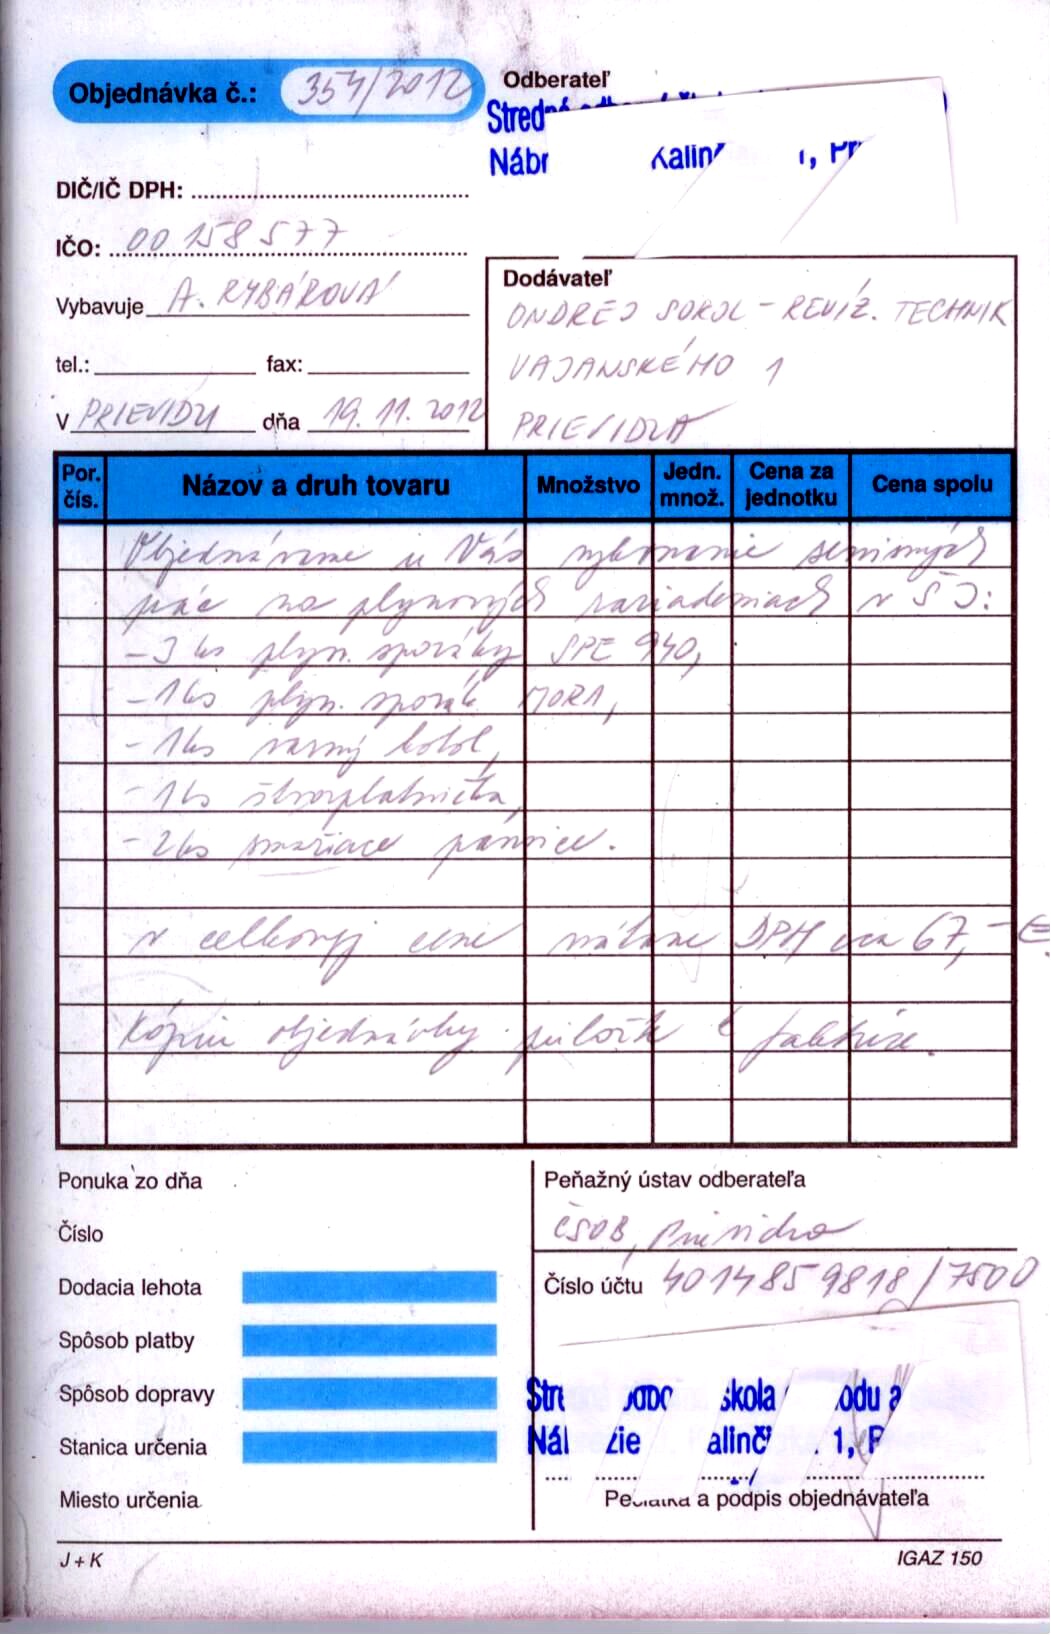 Objednávka č.: 354/2012
Odberateľ
DIČ/IČ DPH:
IČO: 00158577
Vybavuje A. RYBÁROVÁ
tel.: fax:
V PRIEVIDZI dňa 19.11.2012
Dodávateľ
ONDREJ SOKOL - REVÍZ. TECHNIK
VAJANSKÉHO 1
PRIEVIDZA
Por. čís. Názov a druh tovaru Množstvo Jedn. množ. Cena za jednotku Cena spolu
Objednávame u Vás vykonanie servisných
prác na plynových zariadeniach v ŠJ:
- 3 ks plyn. sporáky SPE 940,
- 1 ks plyn. sporák MORA,
- 1 ks varný kotol,
- 1 ks štvorplatnička,
- 2 ks smažiace panvice.
v celkovej cene vrátane DPH cca 67,- €.
Kópiu objednávky priložte k faktúre.
Ponuka zo dňa
Číslo
Dodacia lehota
Spôsob platby
Spôsob dopravy
Stanica určenia
Miesto určenia
Peňažný ústav odberateľa
ČSOB, Prievidza
Číslo účtu 4014859818/7500
škola
a podpis objednávateľa
J + K
IGAZ 150